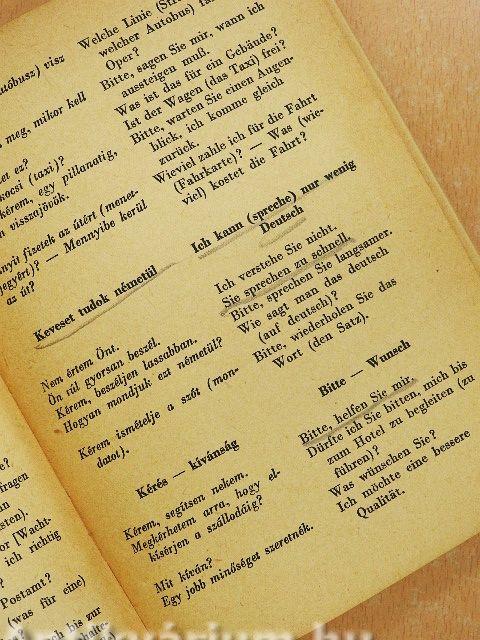 Welche Linie
welcher Autobus)
Oper?
Bitte, sagen Sie mir, wann ich
aussteigen muß.
Was ist das für ein Gebäude?
Ist der Wagen (das Taxi) frei?
Bitte, warten Sie einen Augen-
blick, ich komme gleich
zurück.
Wieviel zahle ich für die Fahrt
(Fahrkarte)? — Was (wie-
viel) kostet die Fahrt?
visz
meg, mikor kell
ez?
kocsi (taxi)?
egy pillanatig,
visszajövök.
fizetek az útért (menet-
— Mennyibe kerül
az út?
Ich kann (spreche) nur wenig
Deutsch
Ich verstehe Sie nicht.
Sie sprechen zu schnell.
Bitte, sprechen Sie langsamer.
Wie sagt man das deutsch
(auf deutsch)?
Bitte, wiederholen Sie das
Wort (den Satz).
Keveset tudok németül
Nem értem Önt.
Ön túl gyorsan beszél.
Kérem, beszéljen lassabban.
Hogyan mondjuk ezt németül?
Kérem ismételje a szót (mon-
datot).
Bitte — Wunsch
Bitte, helfen Sie mir.
Dürfte ich Sie bitten, mich bis
zum Hotel zu begleiten (zu
führen)?
Was wünschen Sie?
Ich möchte eine bessere
Qualität.
Kérés — kívánság
Kérem, segítsen nekem.
Megkérhetem arra, hogy el-
kísérjen a szállodáig?
Mit kíván?
Egy jobb minőséget szeretnék.
fragen
[Wacht-
ich richtig
Postamt?
(was für eine)
bis zur